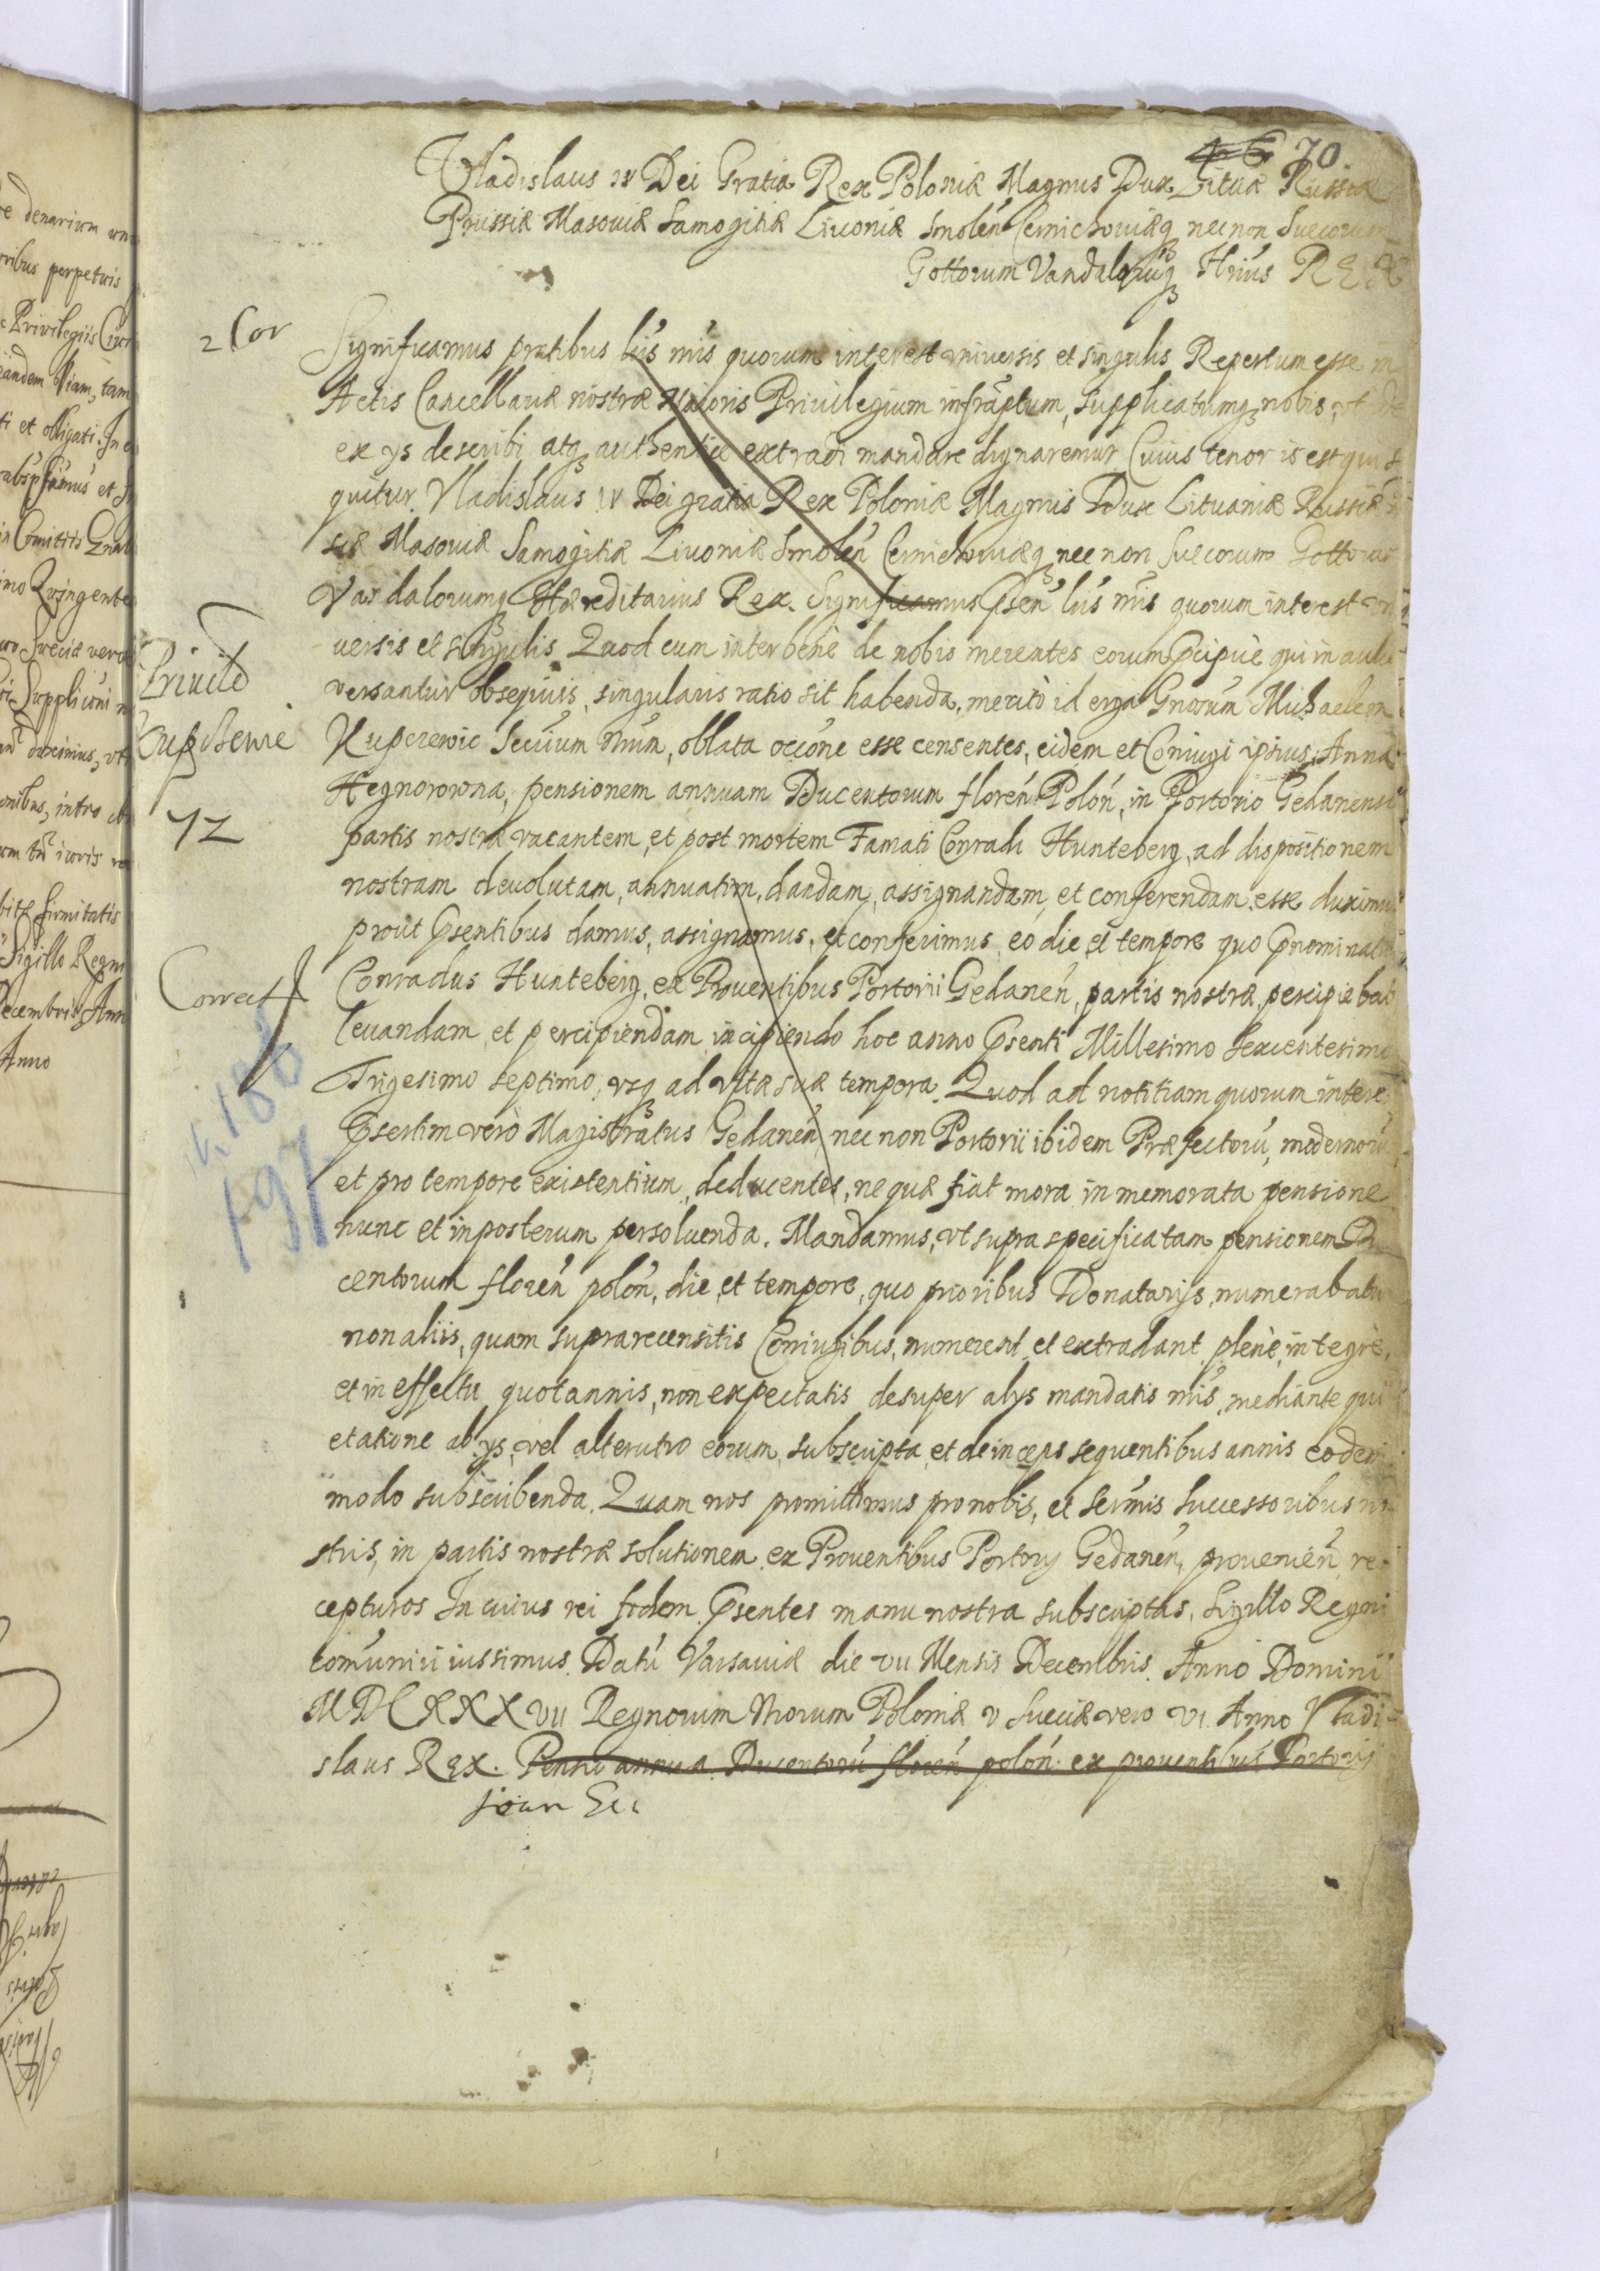 70.
Vladislaus IV Dei Gratia Rex Poloniæ Magnus Dux Lituæ Russiæ
Prussiæ Masoviæ Samogitiæ Livoniæ Smolen Cernichoviæq nec non Suecorum
Gottorum Vandalorumq Hrius REX
2 Cor
Significamus pntibus lris nris quorum interest vniversis et singulis Repertum esse in
Actis Cancellariæ nostræ Maioris Privilegium infrascriptum, supplicatumq nobis, vt
ex ys describi atq authentice extradi mandare dignaremur Cuius tenor is est qui se
quitur. Vladislaus IV Dei gratia Rex Poloniæ Magnus Dux Lituaniæ Russiæ
siæ Masoviæ Samogitiæ Livoniæ Smolen Cernichoviæq nec non Suecorum Gottorum
Vandalorumq Hæreditarius Rex. Significamus Psen lris nris quorum interest vn
versis et singulis Quod cum inter bene de nobis merentes eorum Pcipuè qui in aula
Privile
versantur obsequiis, singularis ratio sit habenda, meritò id erga Gnosum Michaelem
Kuperewic Servum nrum, oblata occone esse censentes, eidem et Coniugi ipsius, Anna
Hegnorowna, pensionem annuam Ducentorum floren Polon, in Portorio Gedanensi
72
partis nostræ vacantem, et post mortem Famati Conradi Hunteberg, ad dispositionem
nostram devolutam, annuatim, dandam, assignandam, et conferendam esse duximus
prout Psentibus damus, assignamus, et conferimus, eo die et tempore quo Pnominatus
Correct
Conradus Hunteberg, ex Proventibus Portorii Gedanen, partis nostræ, percipiebat
levandam et percipiendam incipiendo hoc anno Psenti Millesimo Sexcentesimo
188
Trigesimo septimo, vsq ad vitæ suæ tempora. Quod ad notitiam quorum interest
197
Psertim verò Magistratus Gedanen, nec non Portorii ibidem Præfectorú, modernorú
et pro tempore existentium, deducentes, ne quæ fiat mora in memorata pensione
nunc et in posterum persoluenda. Mandamus, vt supra specificatam pensionem Du
centorum floren polon, die et tempore, quo prioribus Donatarijs, numerabatur
non aliis, quam suprarecensitis Coniugibus, numerent et extradant plenè, integrè,
et in effectu quotannis, non expectatis desuper alys mandatis nris, mediante qui
etatione ab ys, vel alterutro eorum, subscripta, et deinceps sequentibus annis eodem
modo subscribenda. Quam nos promittimus pro nobis, et Sermis Successoribus no
stris, in partis nostræ solutionem ex Proventibus Portorij Gedanen, provenien re
cepturos In cuius rei fidem Psentes manu nostra subscriptas, Sigillo Regni
comuniri iussimus. Datú Varsaviæ die VII Mensis Decembris. Anno Domini
MDCXXXVII Regnorum Nrorum Poloniæ V Sueciæ vero VI Anno Vladi
slaus Rex. Pensio annua Ducentorú floren polon ex proventibus Portorij